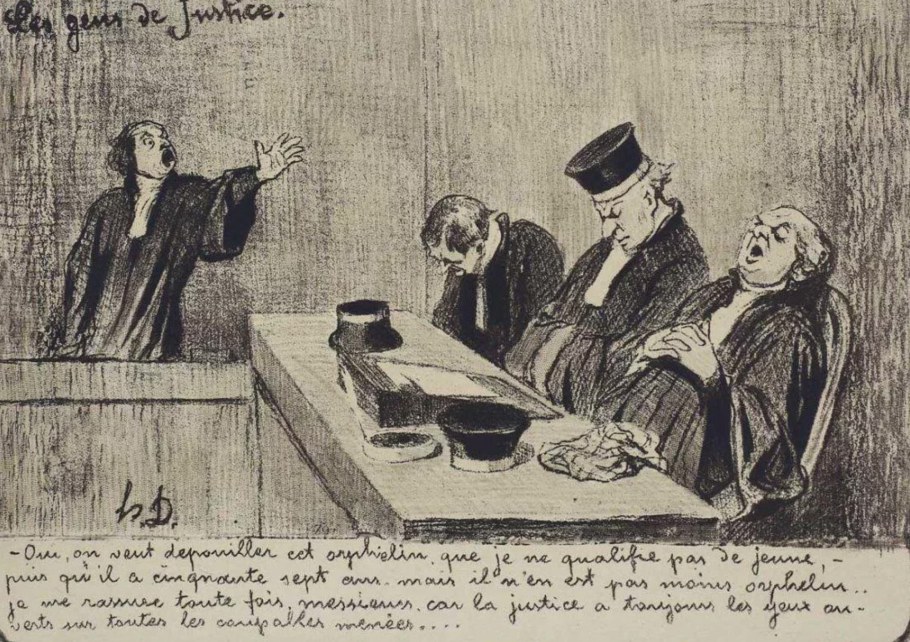 Les gens de Justice.
h.D.
- Oui, on veut depouiller cet orphelin, que je ne qualifie pas de jeune, -
puis qu'il a cinquante sept ans. mais il n'en est pas moins orphelin..
je me rassure toute fois, messieurs, car la justice a toujours les yeux ou-
verts sur toutes les coupables menées....